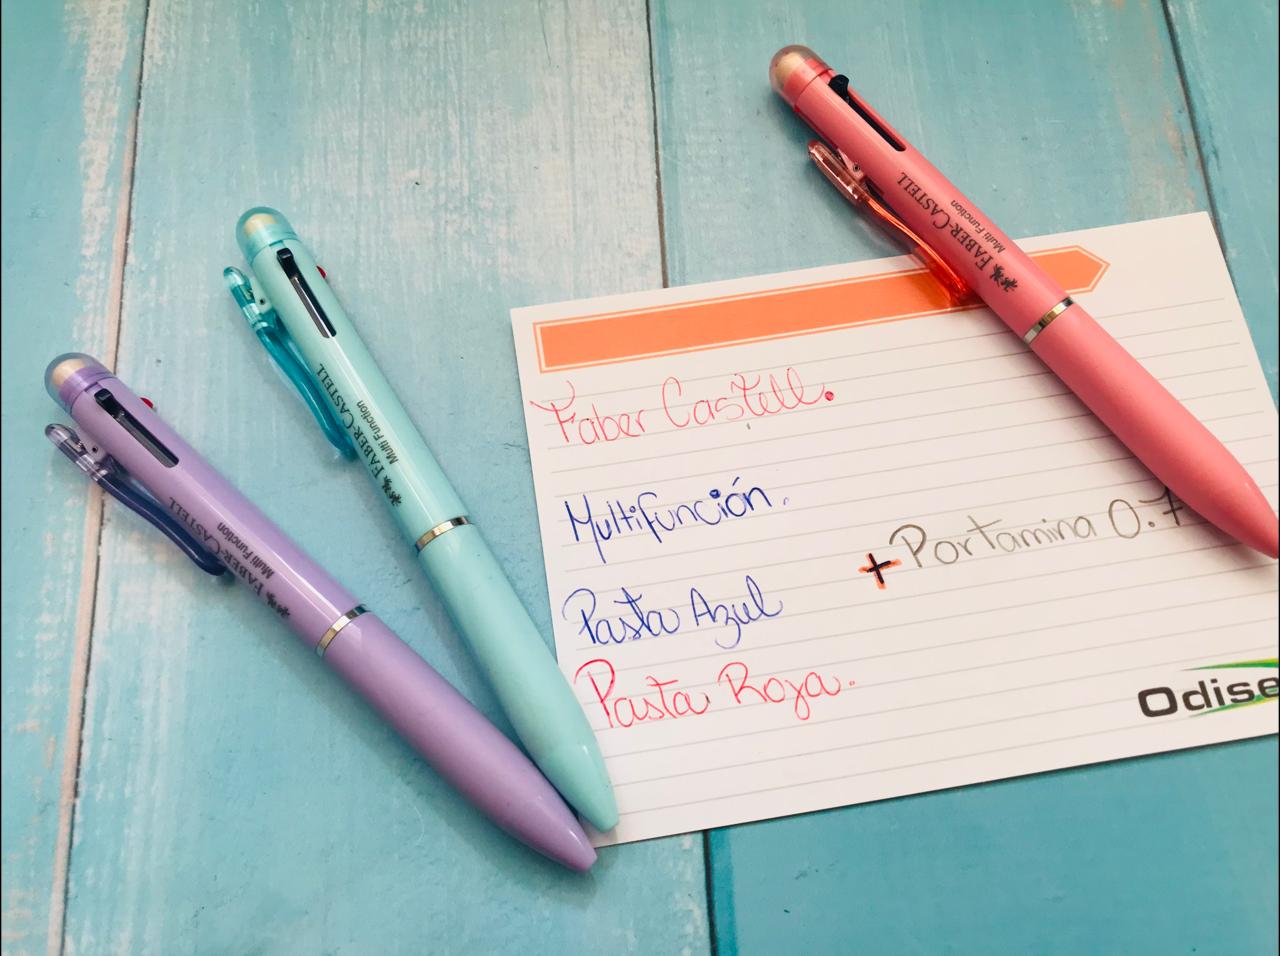 FABER-CASTELL
Multi Function
FABER-CASTELL
Multi Function
FABER-CASTELL
Multi Function
Faber Castell.
Multifunción.
+ Portamina 0.7
Pasta Azul
Pasta Roja.
Odise